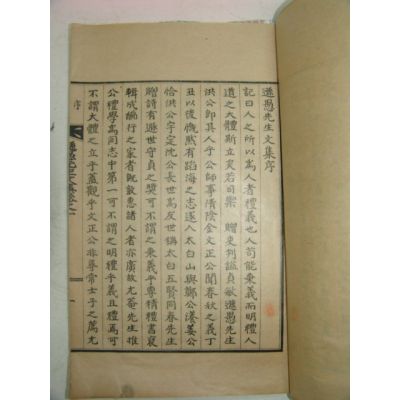 遜愚先生文集序
記曰人之所以爲人者禮義也人苟能秉義而明禮人
道之大體斯立矣若司禦 贈吏判諡貞敏遜愚先生
洪公卽其人乎公師事淸陰金文正公聞春秋之義丁
丑以後慨然有蹈海之志遂入太白山與鄭公瀁姜公
恰洪公宇定沈公長世爲友世稱太白五賢同春先生
贈詩有遯世守貞之奬可不謂之秉義乎專精禮書裒
輯成編行之家者旣敦惠諸人者亦廣故尤菴先生推
公禮學爲同志中第一可不謂之明禮乎義且禮焉可
不謂大體之立乎蓋觀乎文正公非尋常士子之薦尤
序